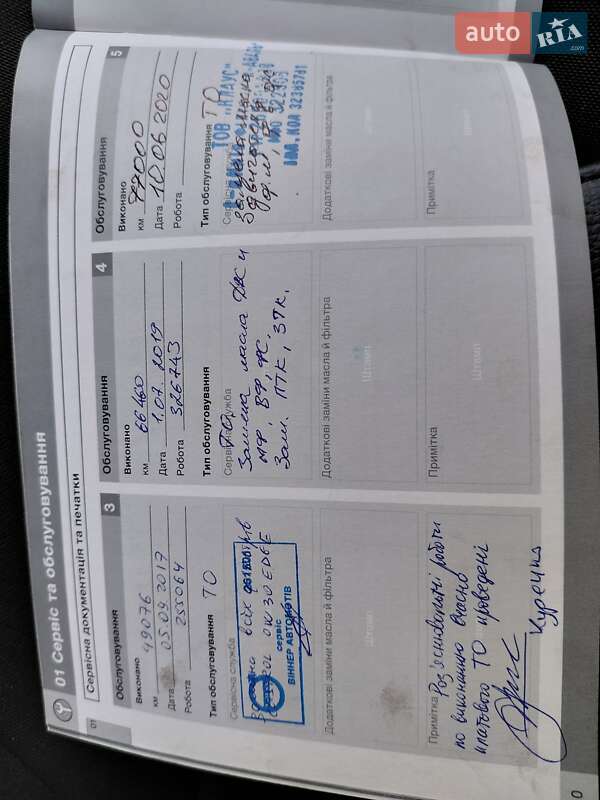 auto RIA.com
01 Сервіс та обслуговування
Сервісна документація та печатки
01
Обслуговування 3
Виконано
км 49076
Дата 05.09.2017
Робота 255064
Тип обслуговування ТО
Сервісна служба
всіх
5W30 EDGE
сервіс
ВІННЕР АВТОМОТІВ
Додаткові заміни масла й фільтра
Штамп
Примітка Роз'яснювальні роботи
по виконанню вчасно
платового ТО проведені
Обслуговування 4
Виконано
км 66460
Дата 1.07.2019
Робота 326743
Тип обслуговування
Сервісна служба
ТО
Замена масла ДЖ и
МФ, ВФ, ФС,
Зам. ПТК, ЗТК.
Додаткові заміни масла й фільтра
Штамп
Примітка
Штамп
Обслуговування 5
Виконано
км 77000
Дата 10.06.2020
Робота
Тип обслуговування ТО
Сервісна
ТОВ "КЛАУС"
322909
ІДЛ. КОД 32385781
Додаткові заміни масла й фільтра
Примітка
0